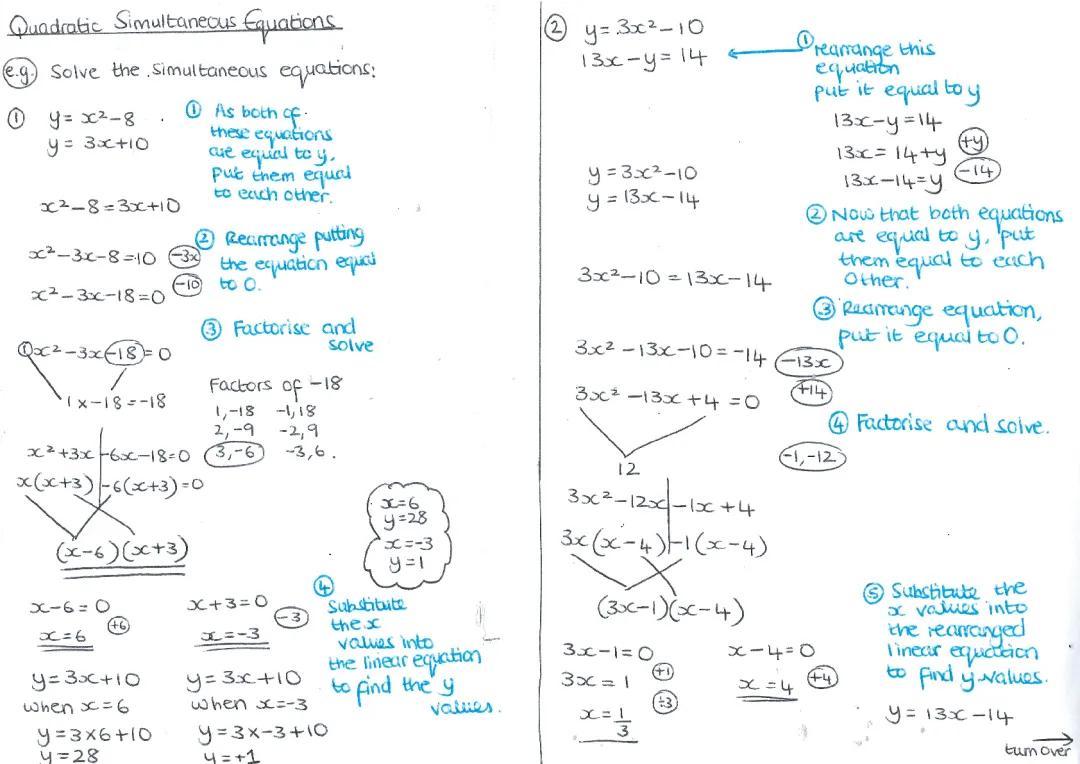 Quadratic Simultaneous Equations
e.g. Solve the simultaneous equations:
① y = x² - 8
y = 3x + 10
① As both of
these equations
are equal to y,
put them equal
to each other.
x² - 8 = 3x + 10
② Rearrange putting
the equation equal
to 0.
x² - 3x - 8 = 10 -3x
x² - 3x - 18 = 0 -10
③ Factorise and
solve
①x² - 3x -18 = 0
1 x -18 = -18
Factors of -18
1, -18 -1, 18
2, -9 -2, 9
3, -6 -3, 6.
x² + 3x - 6x - 18 = 0
x(x+3) - 6(x+3) = 0
(x-6)(x+3)
x=6
y=28
x=-3
y=1
x - 6 = 0
x = 6 +6
x + 3 = 0
x = -3 -3
④
Substitute
the x
values into
the linear equation
to find the y
values.
y = 3x + 10
when x = 6
y = 3 x 6 + 10
y = 28
y = 3x + 10
when x = -3
y = 3 x -3 + 10
y = +1
② y = 3x² - 10
13x - y = 14
① rearrange this
equation
put it equal to y
13x - y = 14
13x = 14 + y +y
13x - 14 = y -14
y = 3x² - 10
y = 13x - 14
② Now that both equations
are equal to y, put
them equal to each
other.
3x² - 10 = 13x - 14
③ Rearrange equation,
put it equal to 0.
3x² - 13x - 10 = -14 -13x
3x² - 13x + 4 = 0 +14
④ Factorise and solve.
12
-1, -12
3x² - 12x - 1x + 4
3x(x-4) - 1(x-4)
(3x-1)(x-4)
3x - 1 = 0
3x = 1 +1
x = 1/3 ÷3
x - 4 = 0
x = 4 +4
⑤ Substitute the
x values into
the rearranged
linear equation
to find y values.
y = 13x - 14
turn over